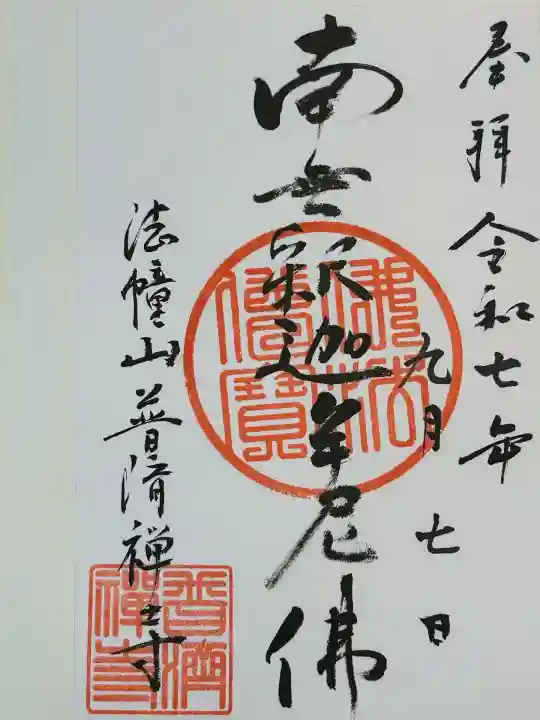 奉拝 令和七年
九月七日
南無釈迦牟尼佛
佛法僧寳
法幢山普済禅寺
普濟禅寺